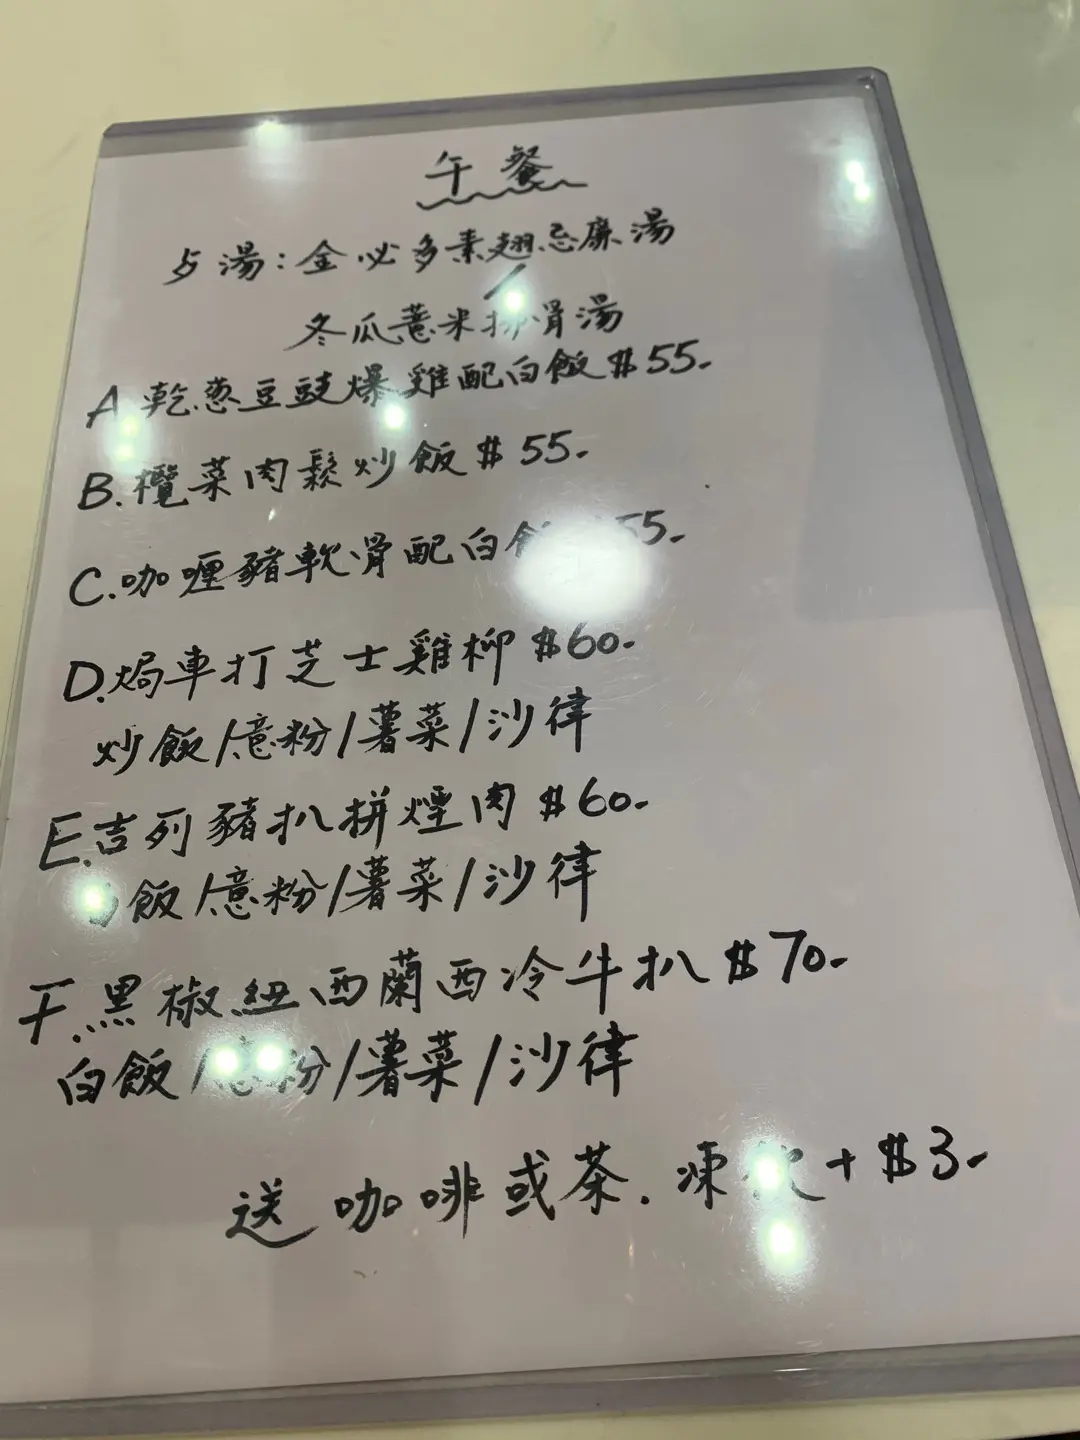 午餐
歺湯：金必多素翅忌廉湯
/
冬瓜薏米排骨湯
A.乾葱豆豉爆雞配白飯$55.
B.欖菜肉鬆炒飯$55.
C.咖喱豬軟骨配白飯 55.
D.焗車打芝士雞柳$60.
炒飯/意粉/薯菜/沙律
E.吉列豬扒拼煙肉$60.
飯/意粉/薯菜/沙律
F.黑椒紐西蘭西冷牛扒$70.
白飯/意粉/薯菜/沙律
送咖啡或茶.凍飲+$3.